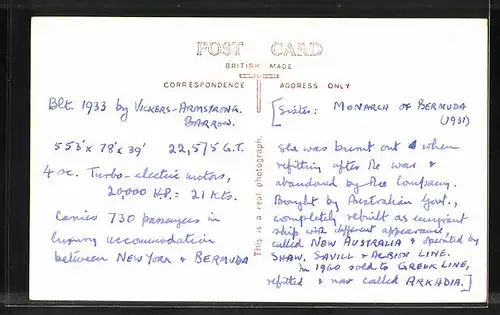 POST CARD
BRITISH MADE
CORRESPONDENCE ADDRESS ONLY
Blt. 1933 by VICKERS-ARMSTRONG.
BARROW.
553' x 78' x 39' 22,575 G.T.
4 sc. Turbo-electric motors,
20,000 H.P. = 21 Kts.
Carries 730 passengers in
luxury accommodation
between NEW YORK & BERMUDA
This is a real photograph.
[Sister: MONARCH OF BERMUDA
(1931)
She was burnt out when
refitting after the war &
abandoned by the Company.
Bought by Australian Govt.,
completely rebuilt as emigrant
ship with different appearance,
called NEW AUSTRALIA & operated by
SHAW, SAVILL & ALBION LINE.
In 1960 sold to GREEK LINE,
refitted & now called ARKADIA.]